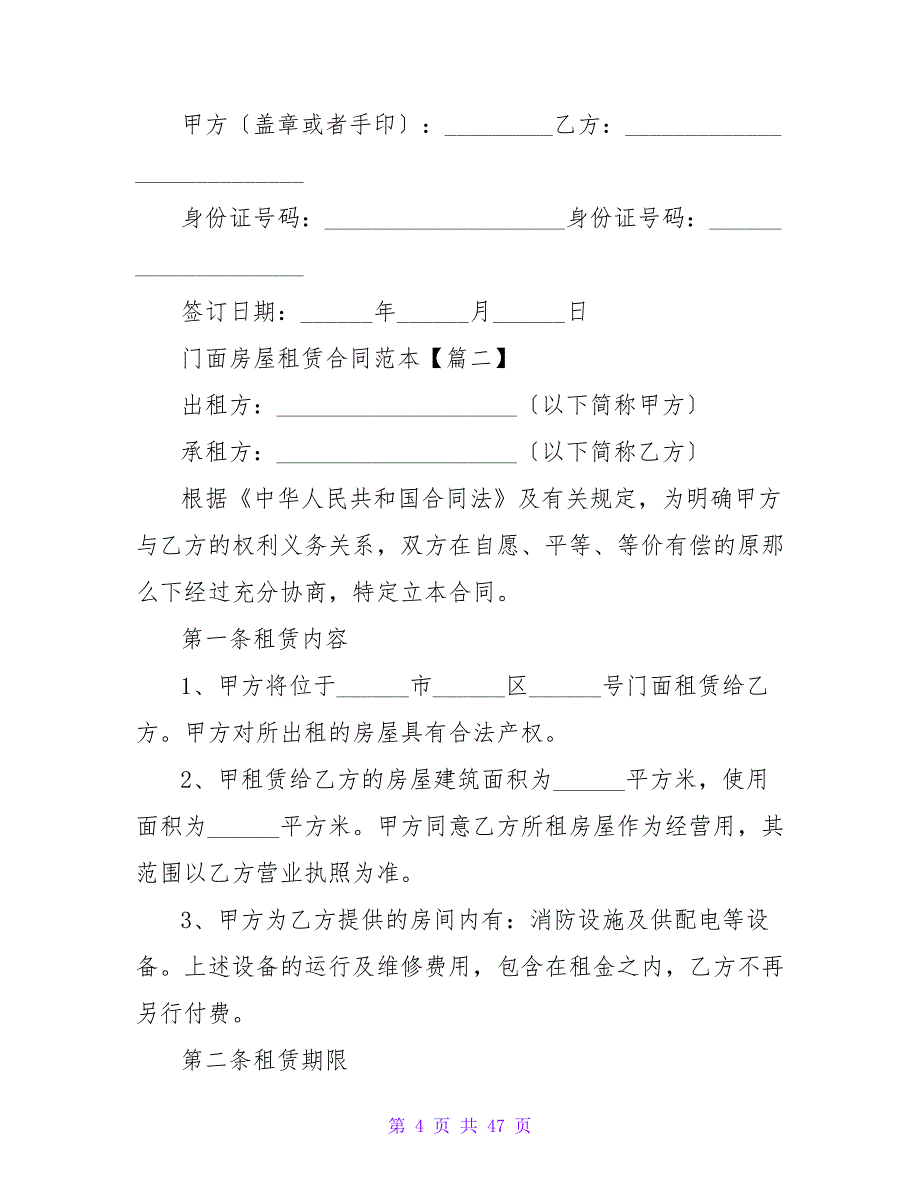 甲方〔盖章或者手印〕：_________乙方：_____________
______________
身份证号码：____________________身份证号码：______
______________
签订日期：______年______月______日
门面房屋租赁合同范本【篇二】
出租方：____________________〔以下简称甲方〕
承租方：____________________〔以下简称乙方〕
根据《中华人民共和国合同法》及有关规定，为明确甲方
与乙方的权利义务关系，双方在自愿、平等、等价有偿的原那
么下经过充分协商，特定立本合同。
第一条租赁内容
1、甲方将位于______市______区______号门面租赁给乙
方。甲方对所出租的房屋具有合法产权。
2、甲租赁给乙方的房屋建筑面积为______平方米，使用
面积为______平方米。甲方同意乙方所租房屋作为经营用，其
范围以乙方营业执照为准。
3、甲方为乙方提供的房间内有：消防设施及供配电等设
备。上述设备的运行及维修费用，包含在租金之内，乙方不再
另行付费。
第二条租赁期限
第 4 页 共 47 页